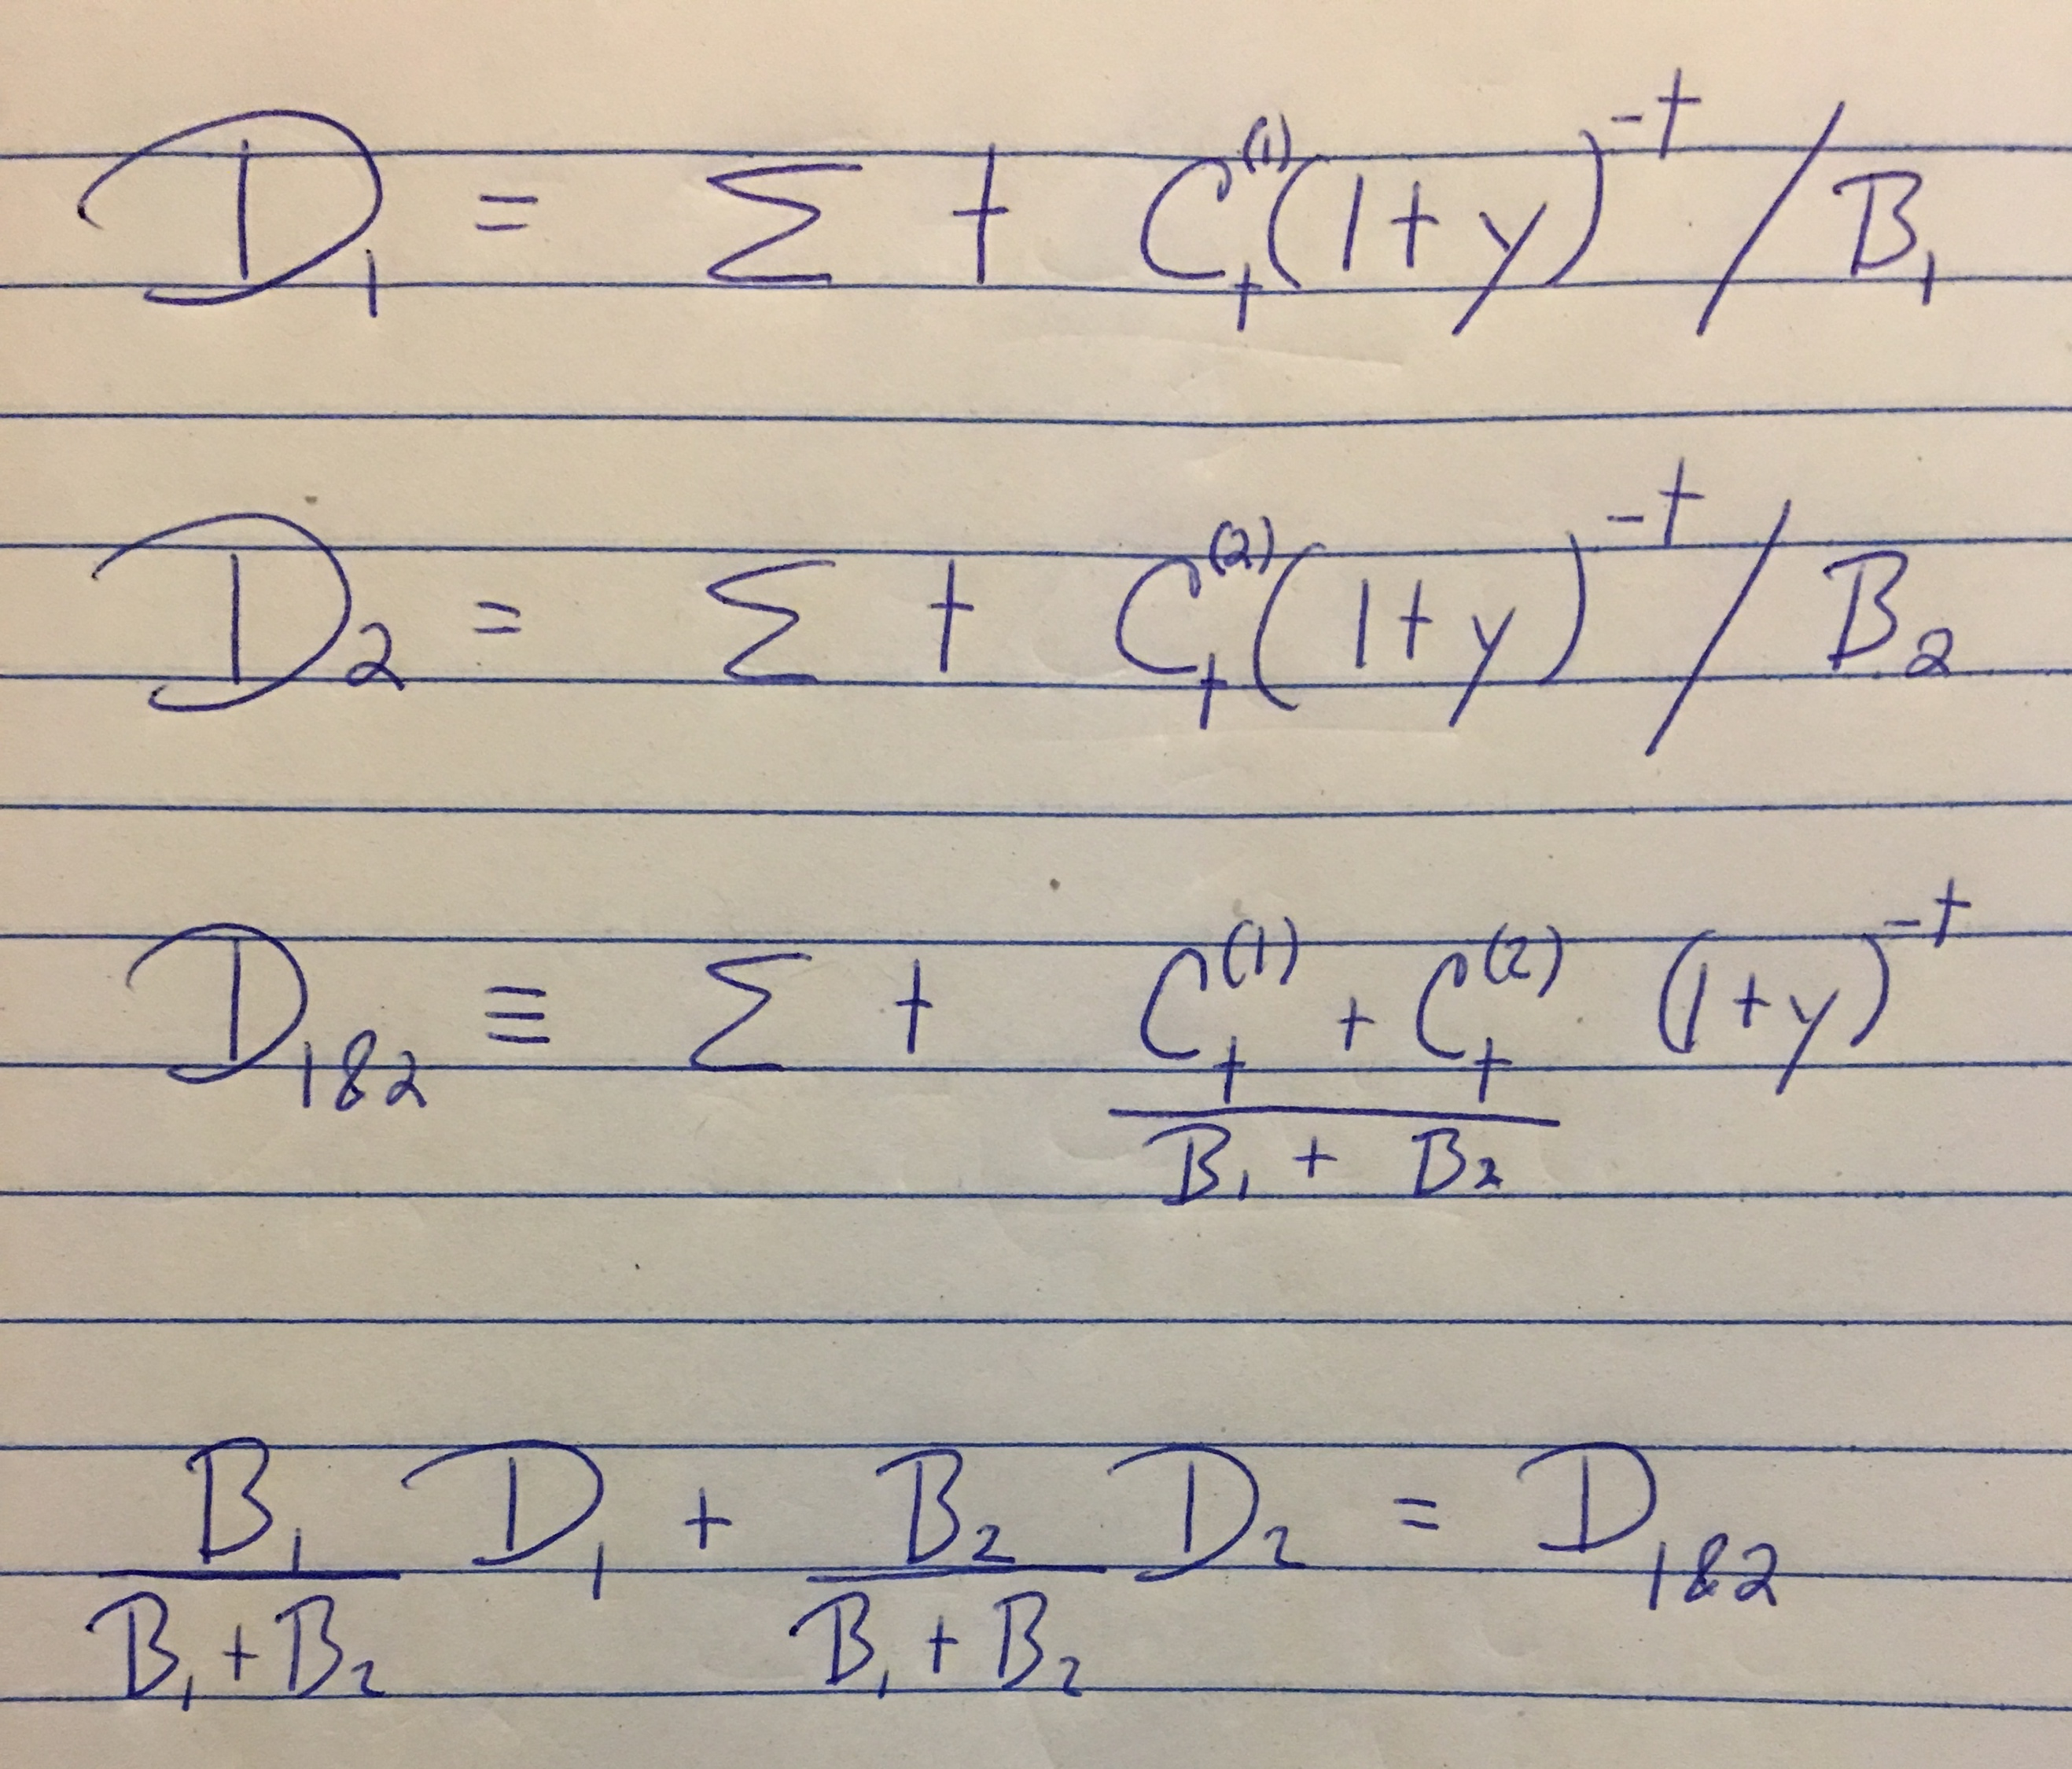 D₁ = Σ t C_t^(1) (1+y)^-t / B₁
D₂ = Σ t C_t^(2) (1+y)^-t / B₂
D_1&2 ≡ Σ t (C_t^(1) + C_t^(2)) / (B₁ + B₂) (1+y)^-t
B₁/(B₁+B₂) D₁ + B₂/(B₁+B₂) D₂ = D_1&2